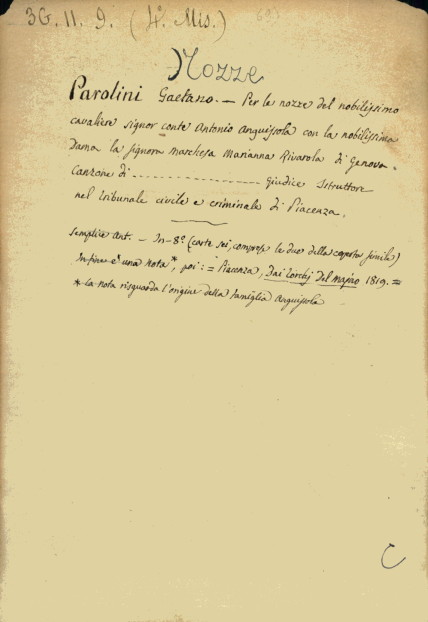 3G. 11. 9. (4.° Mis.)
Nozze
Parolini Gaetano. — Per le nozze del nobilissimo
cavaliere signor conte Antonio Anguissola con la nobilissima
Dama la signora marchesa Marianna Rivarola di Genova.
Canzone di - - - - - - - - - - - - - - - - - - Giudice Istruttore
nel tribunale civile e criminale di Piacenza.
Semplice Ant. — In-8.° (carte sei, comprese le due della coperta simile)
Infine è una nota*, poi: = Piacenza, Dai torchj Del Majno 1819. =
* La nota risguarda l'origine della famiglia Anguissola
C